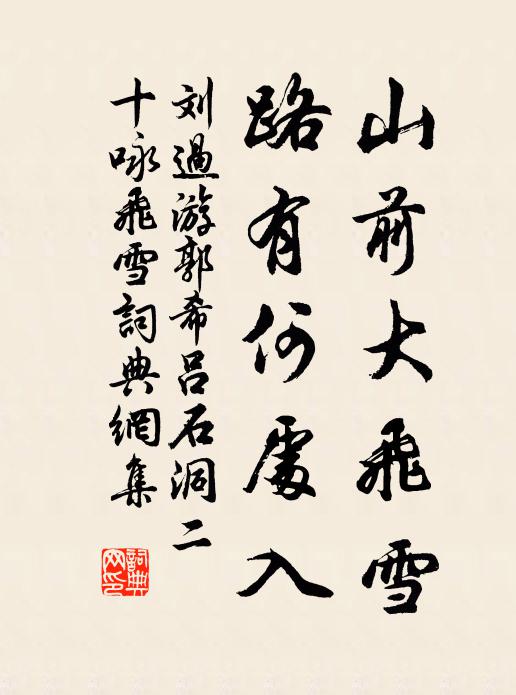 山前大飛雪
路有何處入
刘過游郭希吕石洞二
十咏飛雪詞典網集
詞典網印